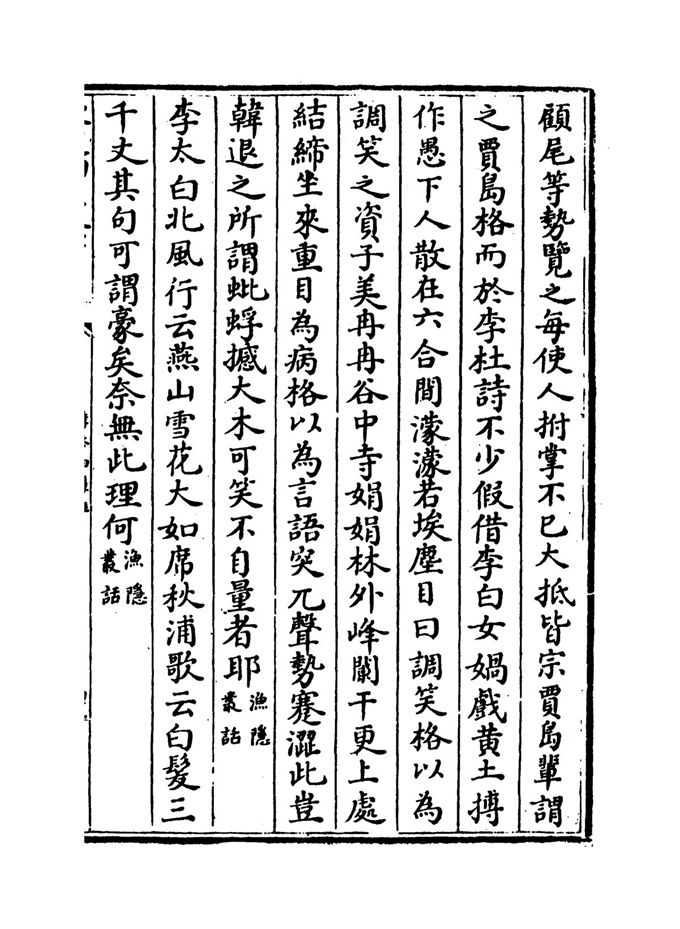 顧尾等勢覽之每使人拊掌不已大抵皆宗賈島輩謂
之賈島格而於李杜詩不少假借李白女媧戲黄土摶
作愚下人散在六合間濛濛若埃塵目曰調笑格以為
調笑之資子美冉冉谷中寺娟娟林外峰闌干更上處
結締坐來重目為病格以為言語突兀聲勢蹇澀此豈
韓退之所謂蚍蜉撼大木可笑不自量者耶漁隱叢話
李太白北風行云燕山雪花大如席秋浦歌云白髪三
千丈其句可謂豪矣奈無此理何漁隱叢話